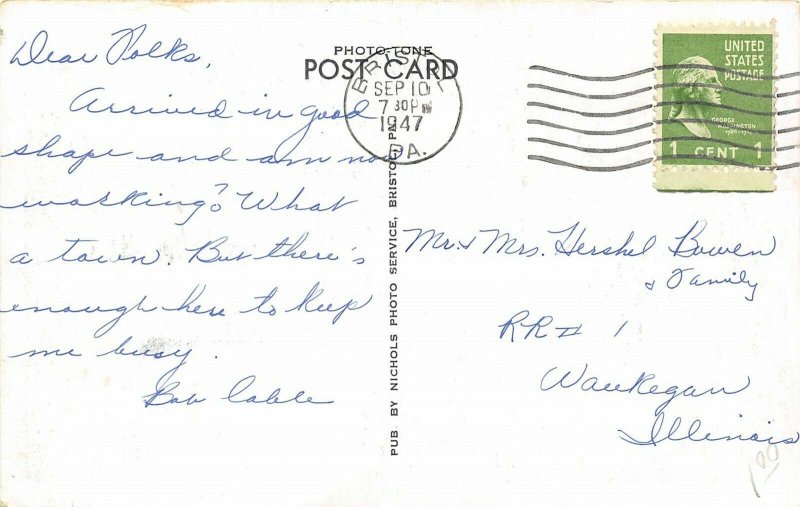 Dear Folks,
Arrived in good
shape and am now
working? What
a town. But there's
enough here to keep
me busy.
Bob Cable
PHOTO-TONE
POST CARD
BRISTOL
SEP 10
7 30PM
1947
PA.
UNITED
STATES
POSTAGE
GEORGE
WASHINGTON
1 CENT 1
PUB. BY NICHOLS PHOTO SERVICE, BRISTOL, PA.
Mr. & Mrs. Hershel Bowen
& Family
RR # 1
Waukegan
Illinois
100